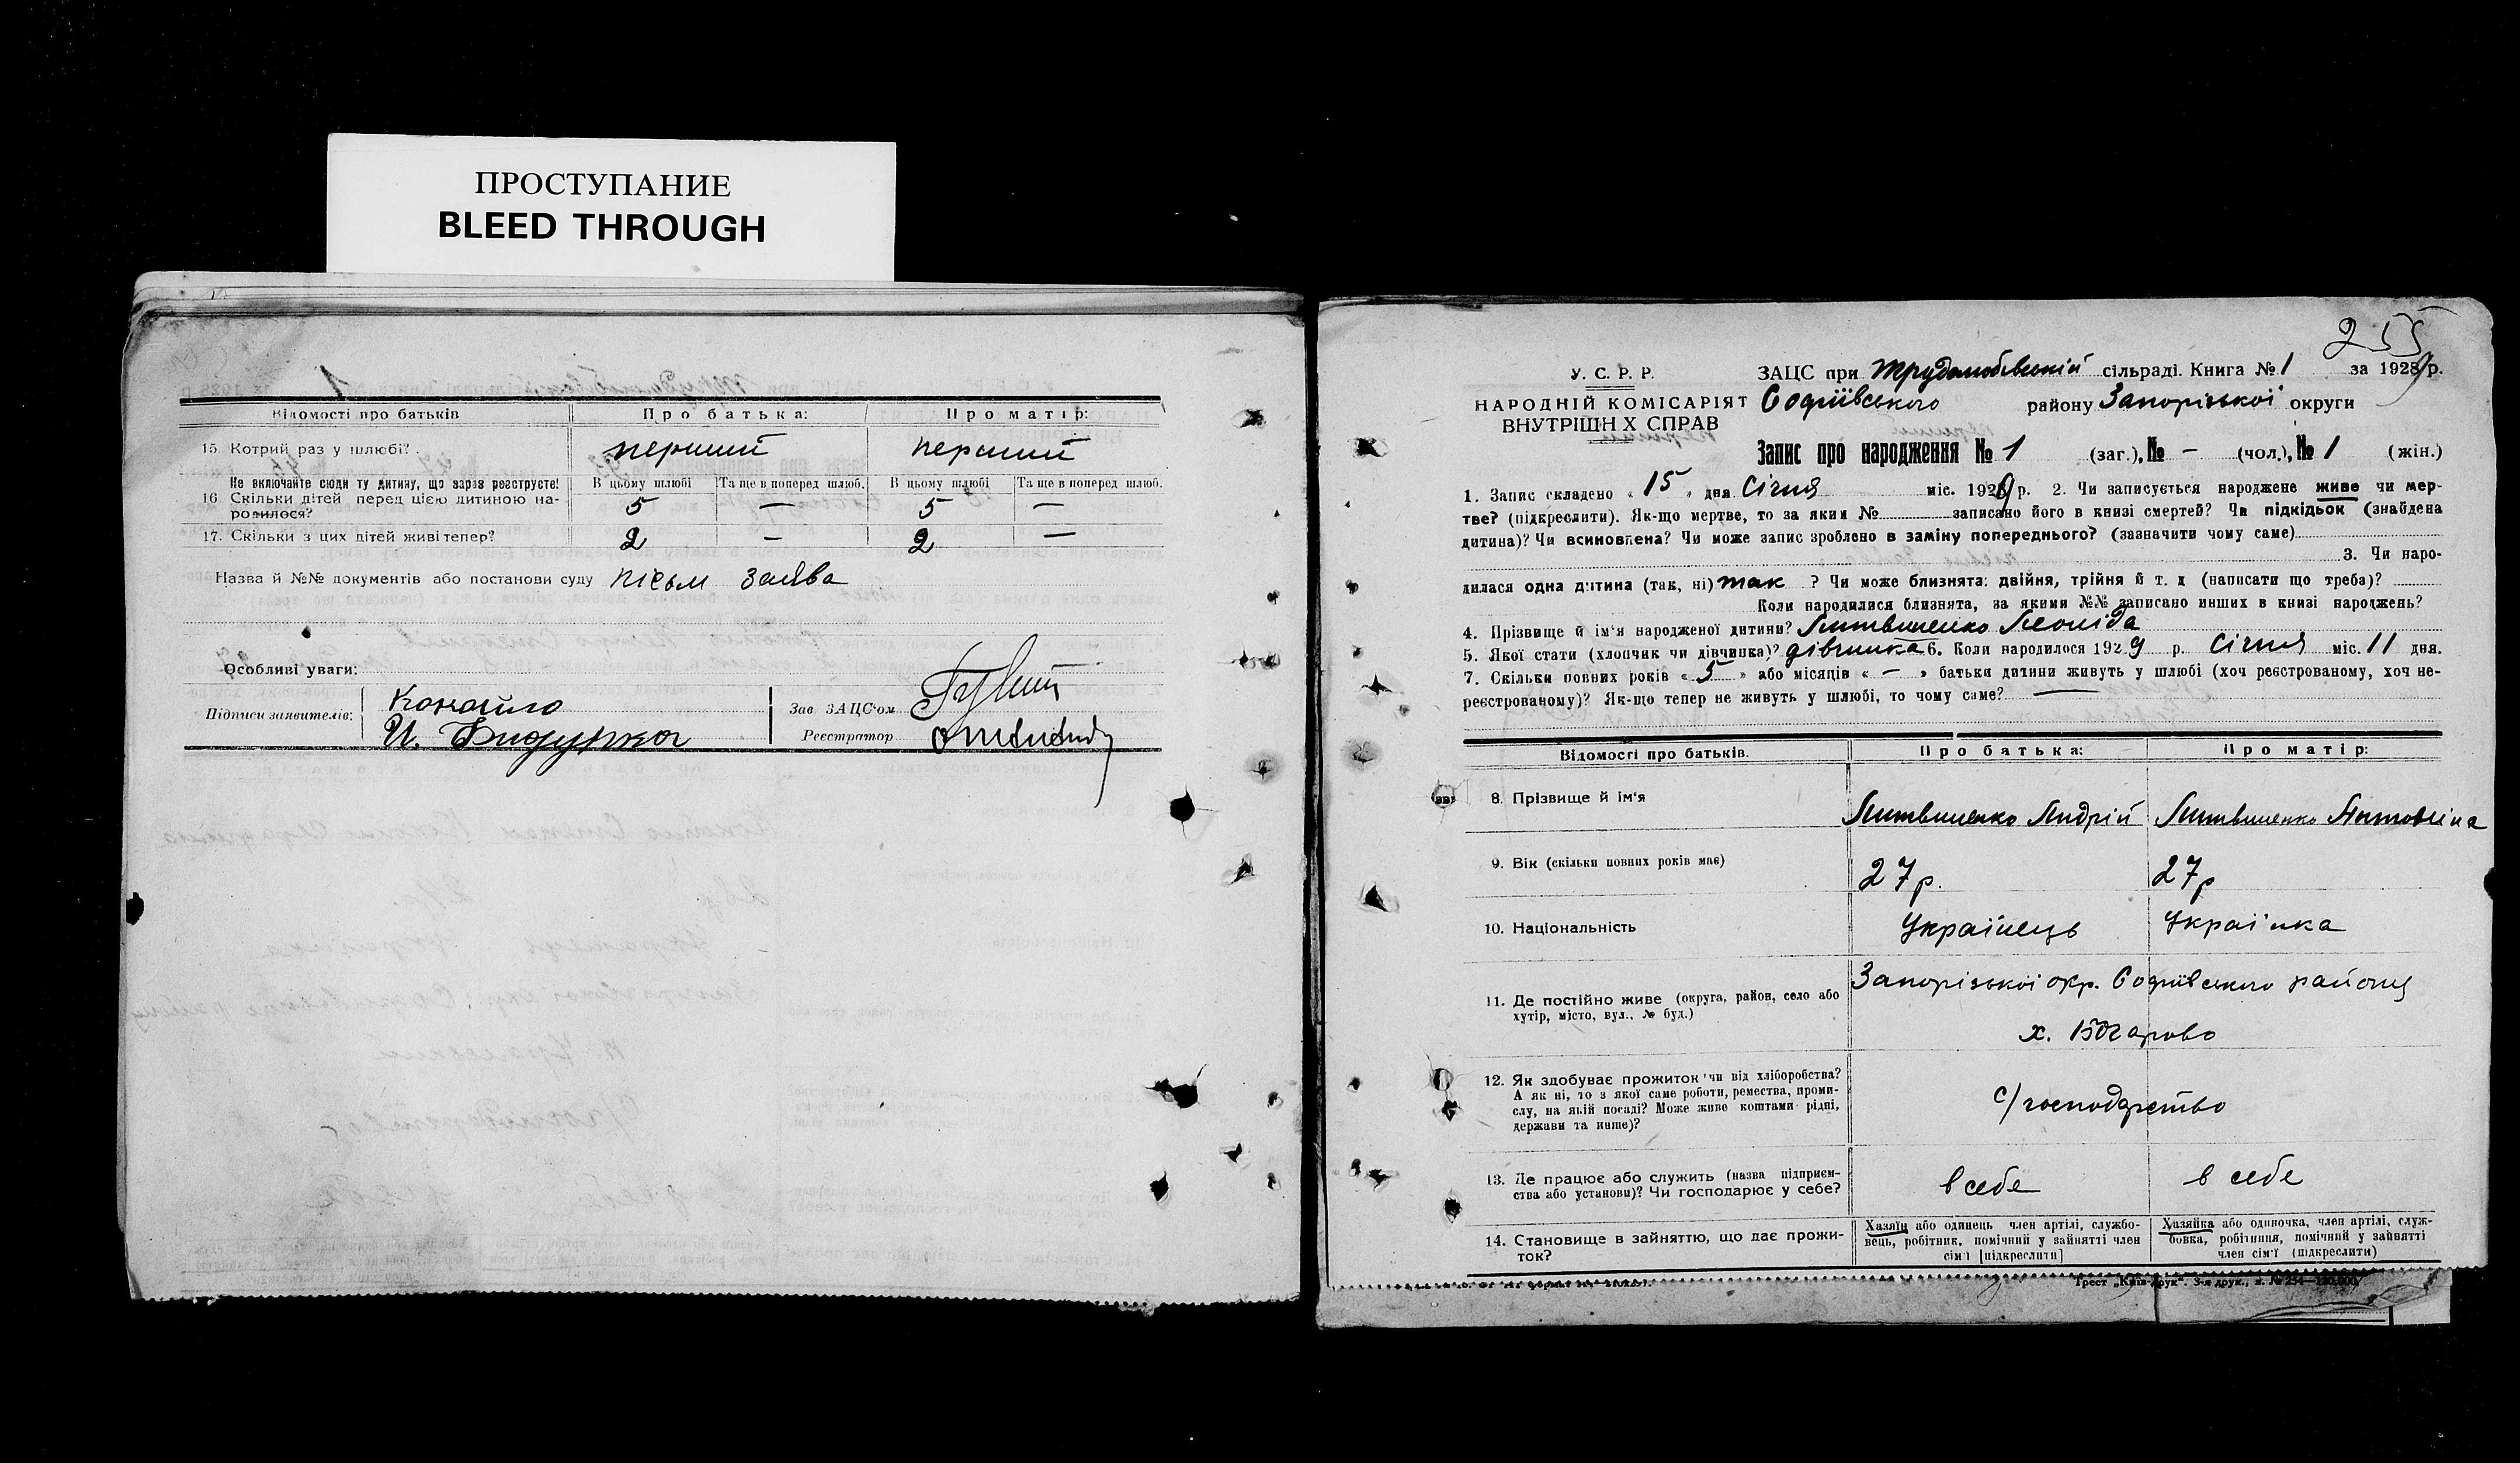 ПРОСТУПАНИЕ
BLEED THROUGH
Відомості про батьків Про батька: Про матір:
15. Котрий раз у шлюбі? перший перший
Не включайте сюди ту дитину, що зараз реєструєте! В цьому шлюбі Та ще в поперед шлюб. В цьому шлюбі Та ще в поперед шлюб.
16. Скільки дітей перед цією дитиною на-
родилося? 5 — 5 —
17. Скільки з цих дітей живі тепер? 2 — 2 —
Назва й №№ документів або постанови суду письм заява
Особливі уваги:
Підписи заявителів: Канайло
И.
Зав ЗАЦС'ом
Реєстратор
255
У. С. Р. Р.
НАРОДНІЙ КОМІСАРІЯТ
ВНУТРІШНІХ СПРАВ
ЗАЦС при сільраді. Книга № 1 за 1929 р.
Софіївського району Запорізької округи
Запис про народження № 1 (заг.), № – (чол.), № 1 (жін.)
1. Запис складено „ 15 " дня Січня міс. 1929 р. 2. Чи записується народжене живе чи мер-
тве? (підкреслити). Як-що мертве, то за яким № записано його в книзі смертей? Чи підкідьок (знайдена
дитина)? Чи всиновлена? Чи може запис зроблено в заміну попереднього? (зазначити чому саме)
3. Чи наро-
дилася одна дитина (так, ні) так ? Чи може близнята: двійня, трійня й т. д (написати що треба)?
Коли народилися близнята, за якими №№ записано инших в книзі народжень?
4. Прізвище й ім'я народженої дитини? Литвиненко Леоніда
5. Якої стати (хлопчик чи дівчинка)? дівчинка 6. Коли народилося 1929 р. Січня міс. 11 дня.
7. Скільки повних років « 5 » або місяців « – » батьки дитини живуть у шлюбі (хоч реєстрованому, хоч не-
реєстрованому)? Як-що тепер не живуть у шлюбі, то чому саме? —
Відомості про батьків. Про батька: Про матір:
8. Прізвище й ім'я Литвиненко Андрій Литвиненко Антоніна
9. Вік (скільки повних років має) 27 р. 27 р
10. Національність Українець Українка
11. Де постійно живе (округа, район, село або
хутір, місто, вул., № буд.) Запорізької окр. Софіївського району
х.
12. Як здобуває прожиток чи від хліборобства?
А як ні, то з якої саме роботи, ремества, проми-
слу, на якій посаді? Може живе коштами рідні,
держави та инше)? с/господарство
13. Де працює або служить (назва підприєм-
ства або установи)? Чи господарює у себе? в себе в себе
14. Становище в зайняттю, що дає прожи-
ток?
Хазяїн або одинець член артілі, службо-
вець, робітник, помічний у зайнятті член
сім'ї [підкреслити]
Хазяйка або одиночка, член артілі, служ-
бовка, робітниця, помічний у зайнятті
член сім'ї (підкреслити)
Трест „Київ-Друк". 3-я друк., з. № 254—120.000